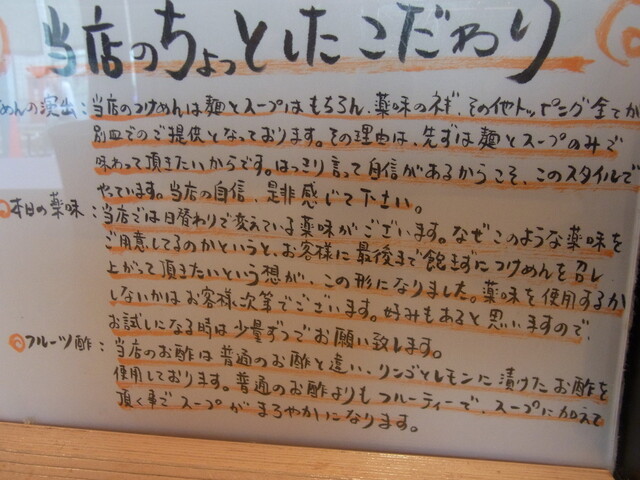 当店のちょっとしたこだわり
めんの演出：当店のつけめんは麺とスープはもちろん、薬味のネギ、その他トッピング全てが
別皿でのご提供となっております。その理由は、先ずは麺とスープのみで
味わって頂きたいからです。はっきり言って自信があるからこそ、このスタイルで
やっています。当店の自信、是非感じて下さい。
本日の薬味：当店では日替わりで変えている薬味がございます。なぜこのような薬味を
ご用意してるのかというと、お客様に最後まで飽きずにつけめんを召し
上がって頂きたいという想が、この形になりました。薬味を使用するか
しないかはお客様次第でございます。好みもあると思いますので、
お試しになる時は少量ずつでお願い致します。
フルーツ酢：当店のお酢は普通のお酢と違い、リンゴとレモンに漬けたお酢を
使用しております。普通のお酢よりもフルーティーで、スープに加えて
頂く事でスープがまろやかになります。